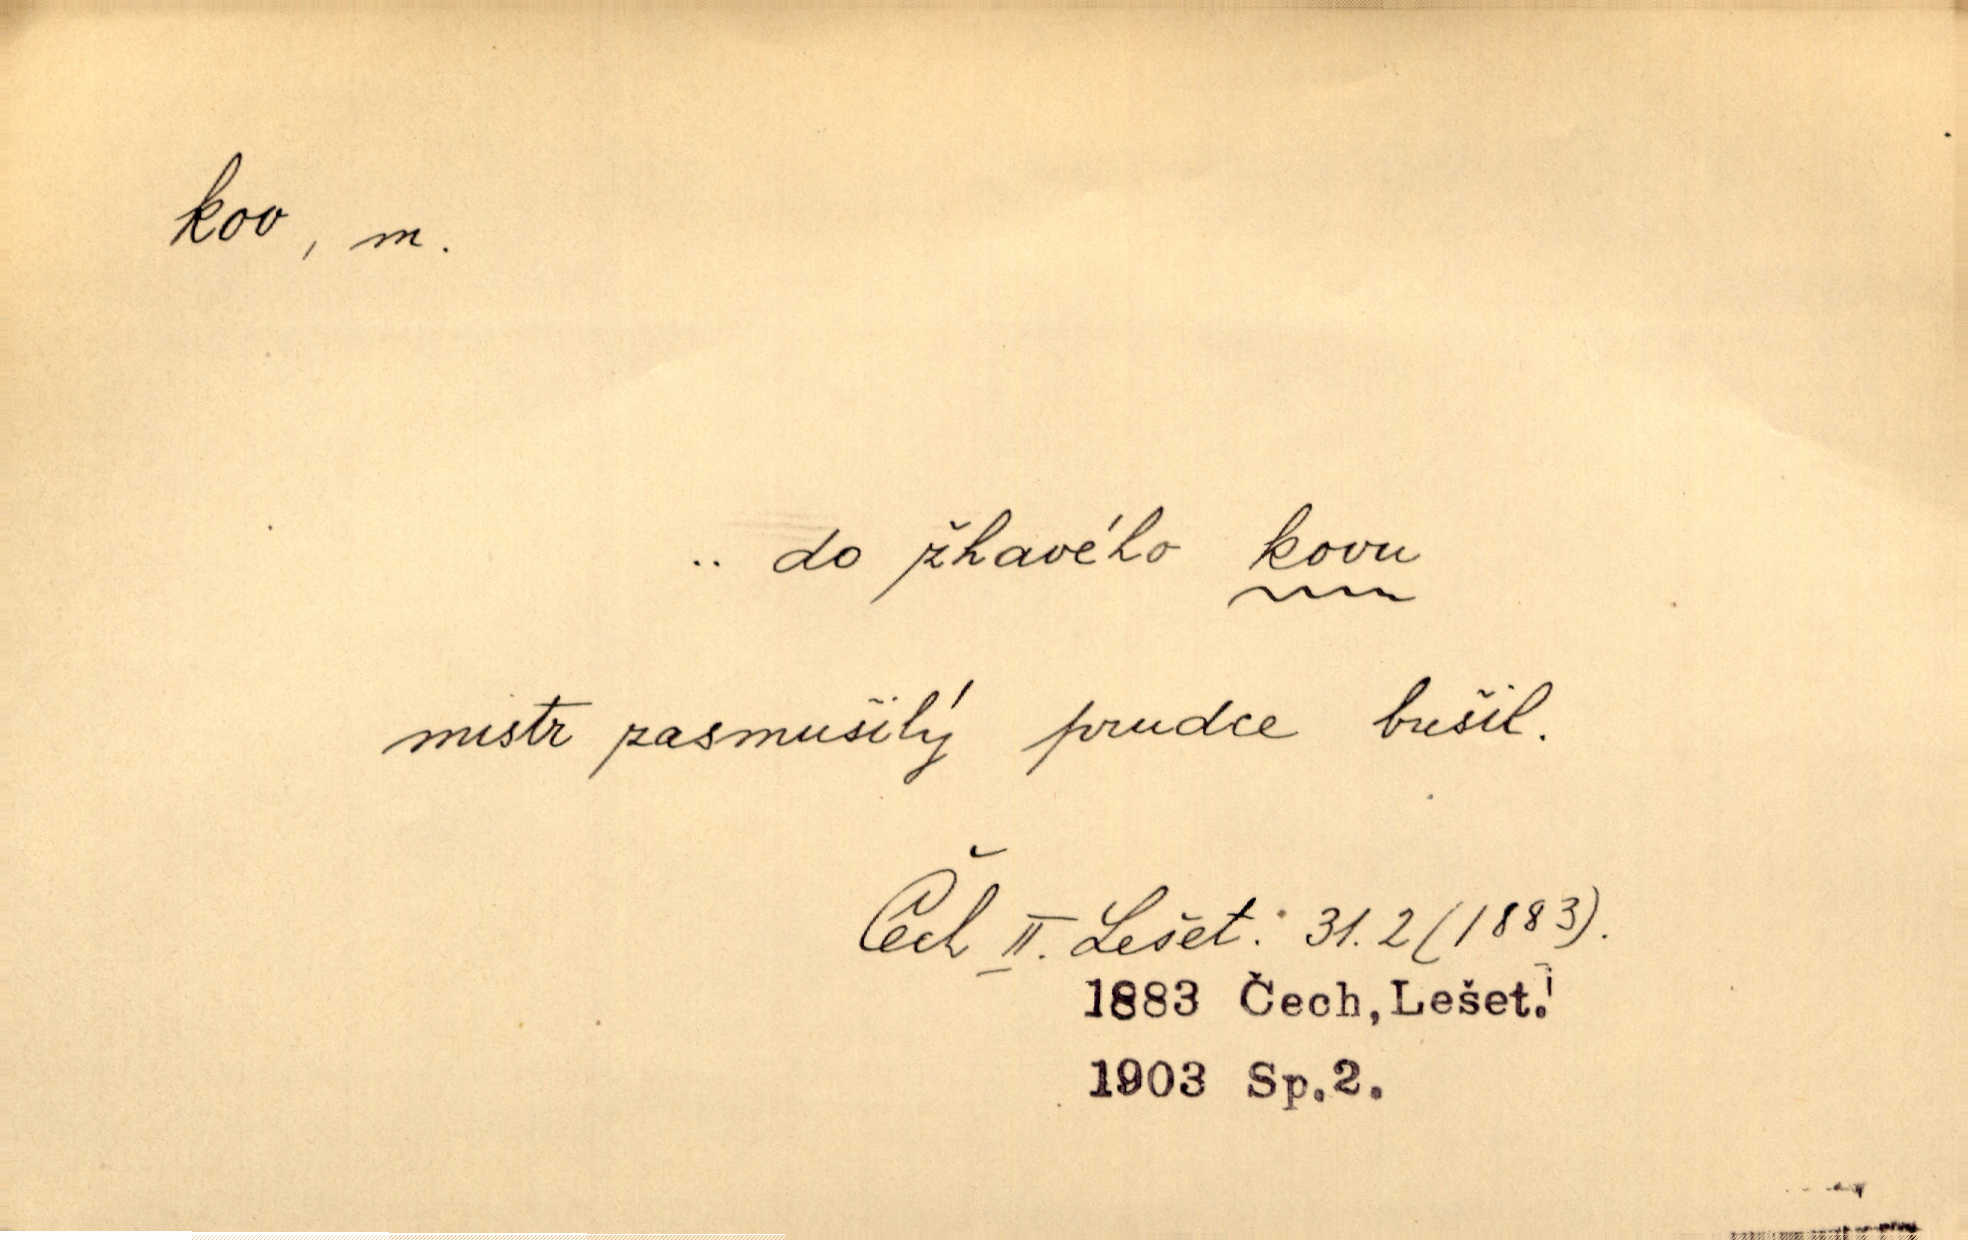 kov, m.
.. do žhavého kovu
mistr zasmušilý prudce bušil.
Čech II. Lešet. 31.2 (1883).
1883 Čech, Lešet.
1903 Sp.2.